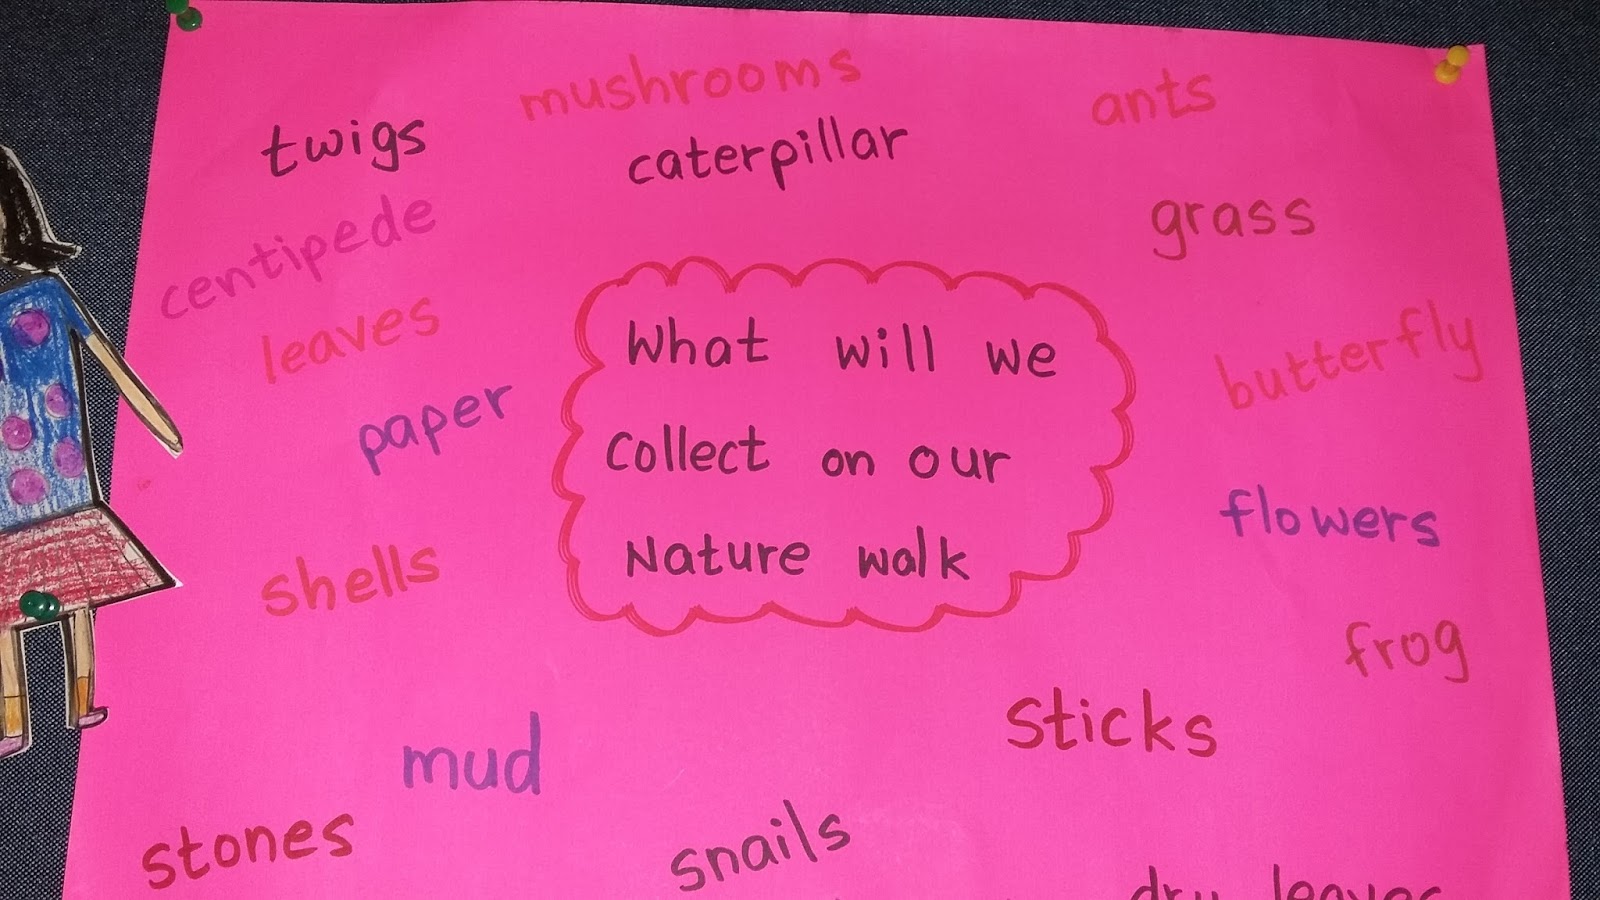 mushrooms
ants
twigs
caterpillar
grass
centipede
leaves
butterfly
What will we
Collect on our
Nature walk
paper
flowers
shells
frog
Sticks
mud
stones
snails
dry leaves